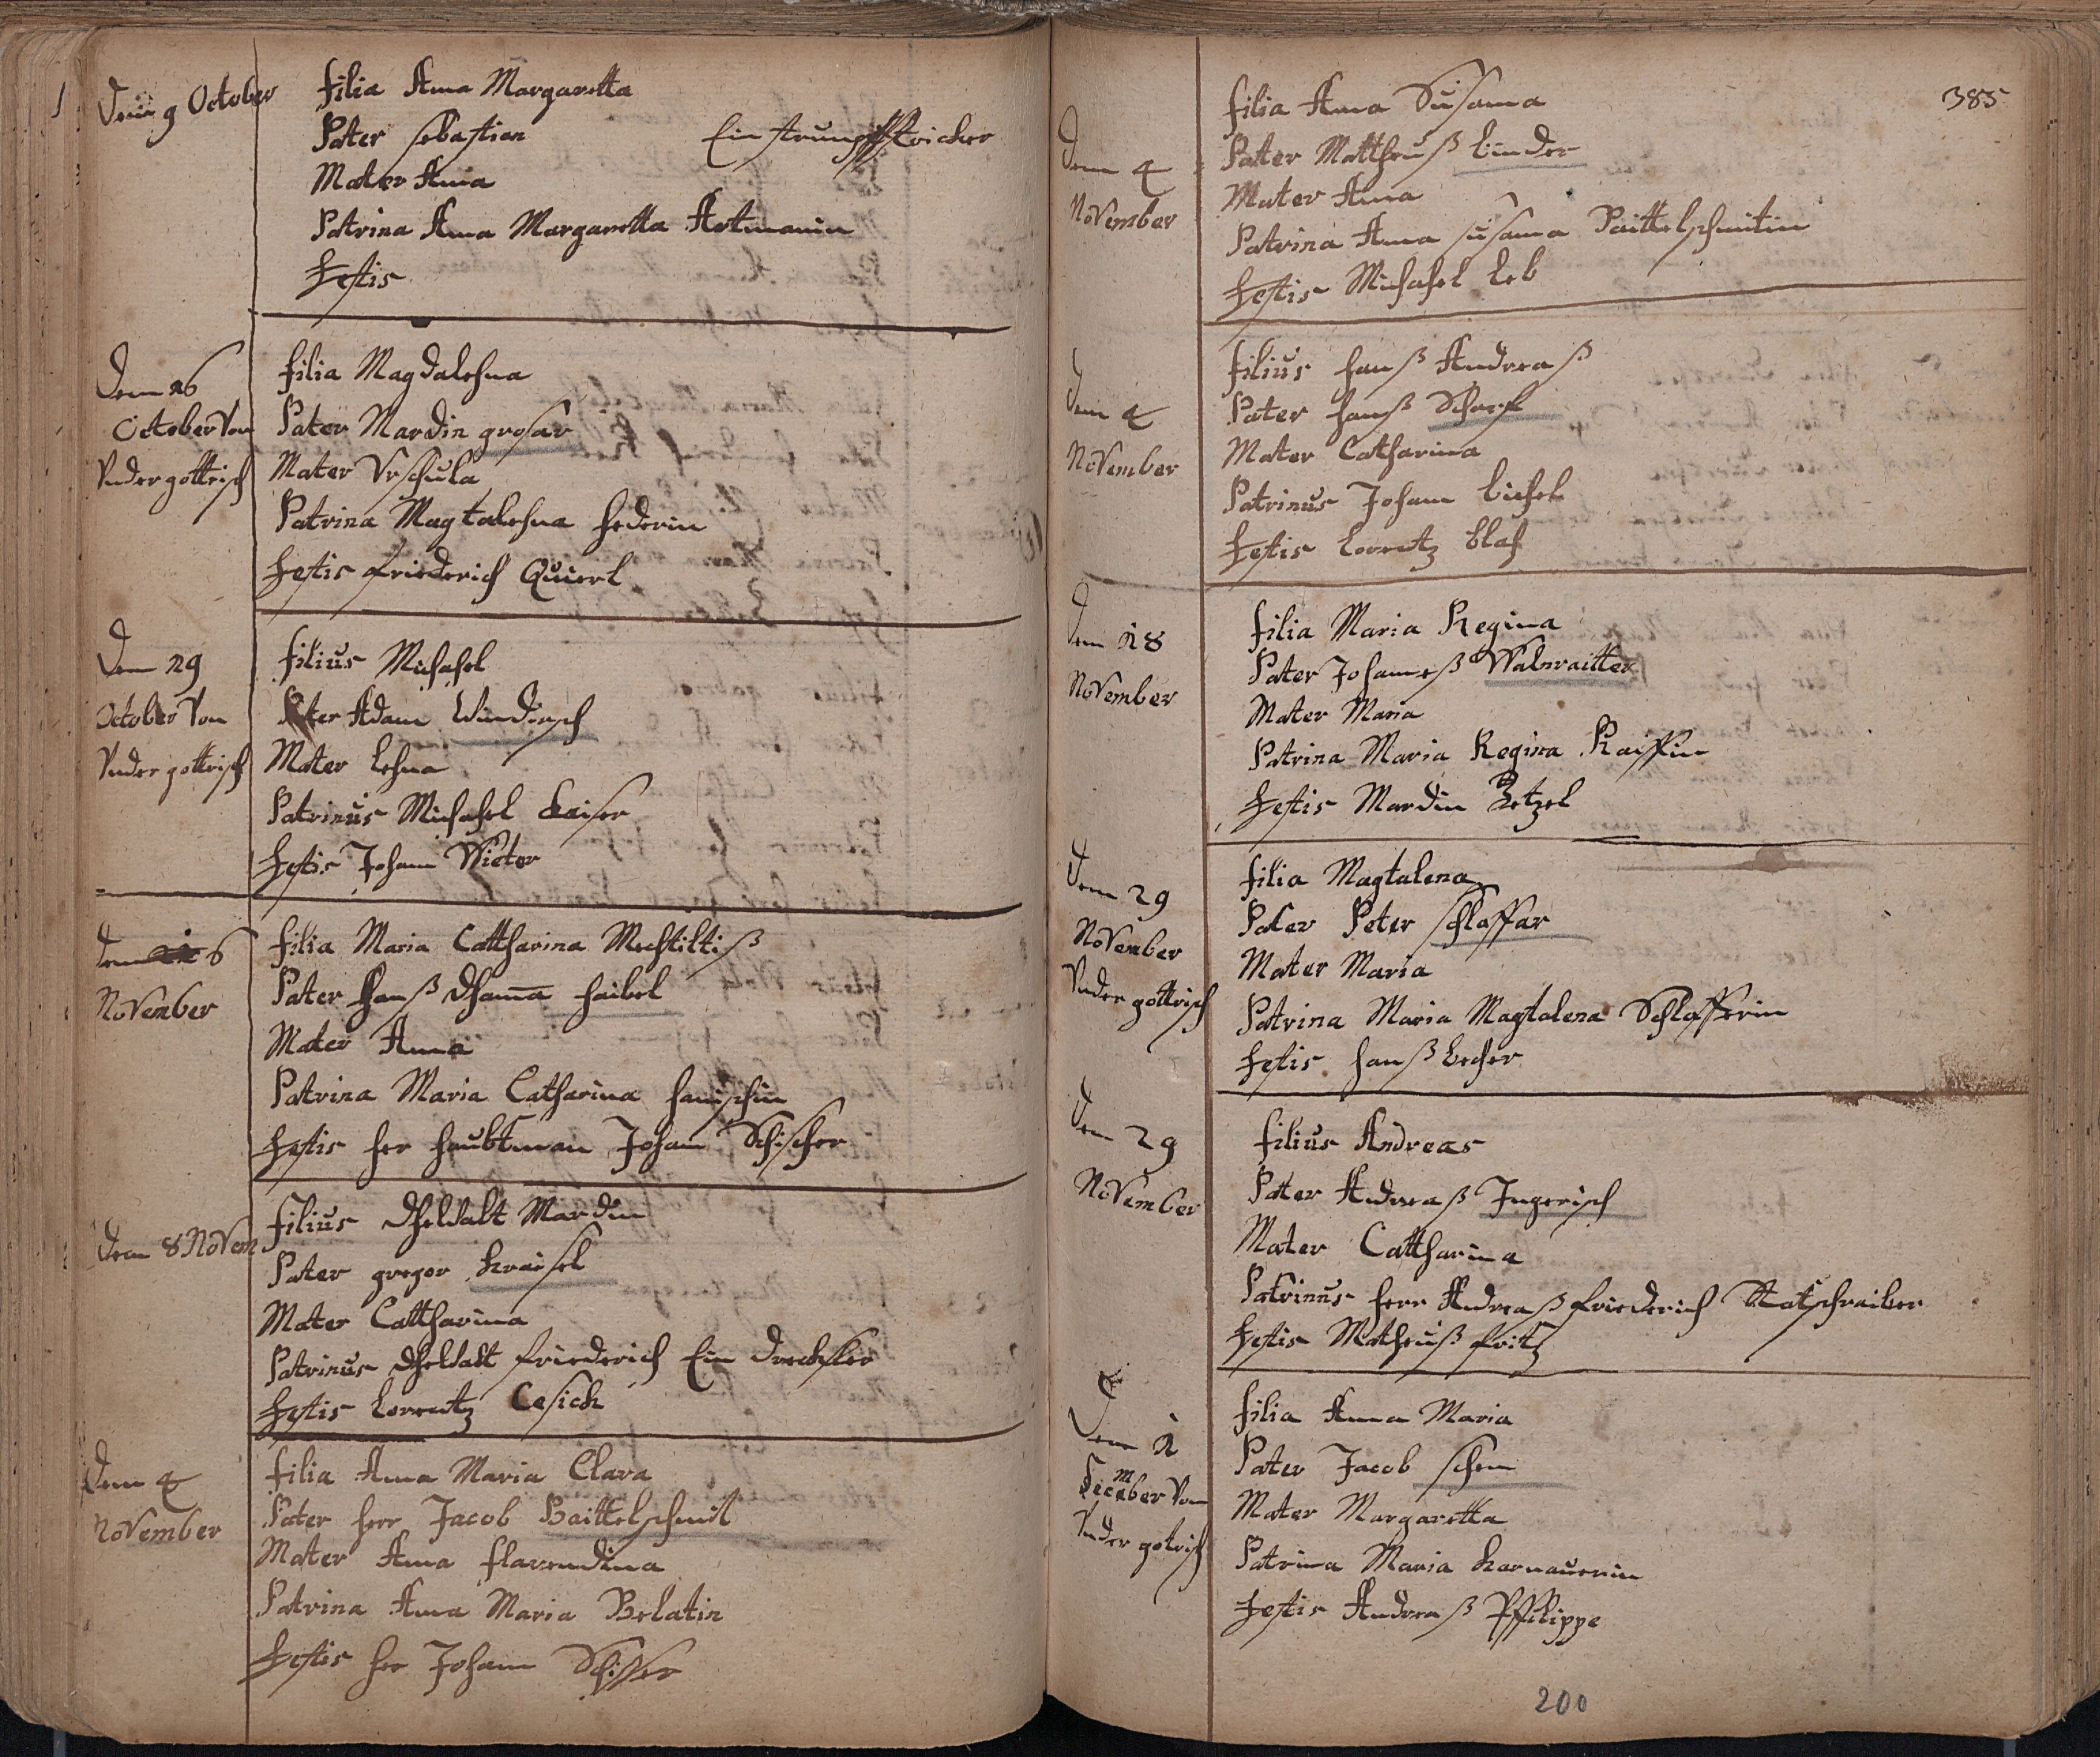 Den 9 October
filia Anna Margaretta
Pater sebastian Ein strumpffstricker
Mater Anna
Patrina Anna Margaretta Artmanin
Testis
Dem 26
October Von
Vnder gottrisch
filia Magdalehna
Pater Mardin grosar
Mater Vrschula
Patrina Magtalehna hederin
Testis friederich Quierl
Dem 29
October Von
Vnder gottrisch
filius Michahel
Pater Adam Windisch
Mater Lehna
Patrinus Michahel Kaiser
Testis Johann Wieter
Dem 6
November
filia Maria Cattharina Mechtiltiß
Pater hanß Dhama haibel
Mater Anna
Patrina Maria Catharina hanischin
Testis her haubtman Johann Schischer
Dem 8 Novem
filius Dheldalt Mardin
Pater gregor Kraisel
Mater Cattharina
Patrinus Dheldalt friederich Ein Drecksler
Testis Lorentz Cesich
Dem 4
November
filia Anna Maria Clara
Pater herr Jacob Baittelschmit
Mater Anna flarendina
Patrina Anna Maria Belatin
Testis her Johann Schisser
385
Dem 4
November
filia Anna Susanna
Pater Mattheuß binder
Mater Anna
Patrina Anna susanna Paittelschmitin
Testis Michahel Leb
Dem 4
November
filius hanß Andreaß
Pater hanß Scharf
Mater Catharina
Patrinus Johann bichel
Testis Lorentz blah
Dem 18
November
filia Maria Regina
Pater Johaneß Walnraitter
Mater Maria
Patrina Maria Regina Raiffin
Testis Mardin Zetzel
Dem 29
November
Vnder gottrisch
filia Magtalena
Pater Peter schlaffar
Mater Maria
Patrina Maria Magtalena Schlafferin
Testis hanß Lecher
Dem 29
November
filius Andreas
Pater Andreaß Ingerisch
Mater Cattharina
Patrinus herr Andreaß friederich Statschraiber
Testis Matheuß fritz
Dem 2
December Von
Vnder gotrisch
filia Anna Maria
Pater Jacob schen
Mater Margaretta
Patrina Maria Karnauerin
Testis Andreaß Pfhilippe
200